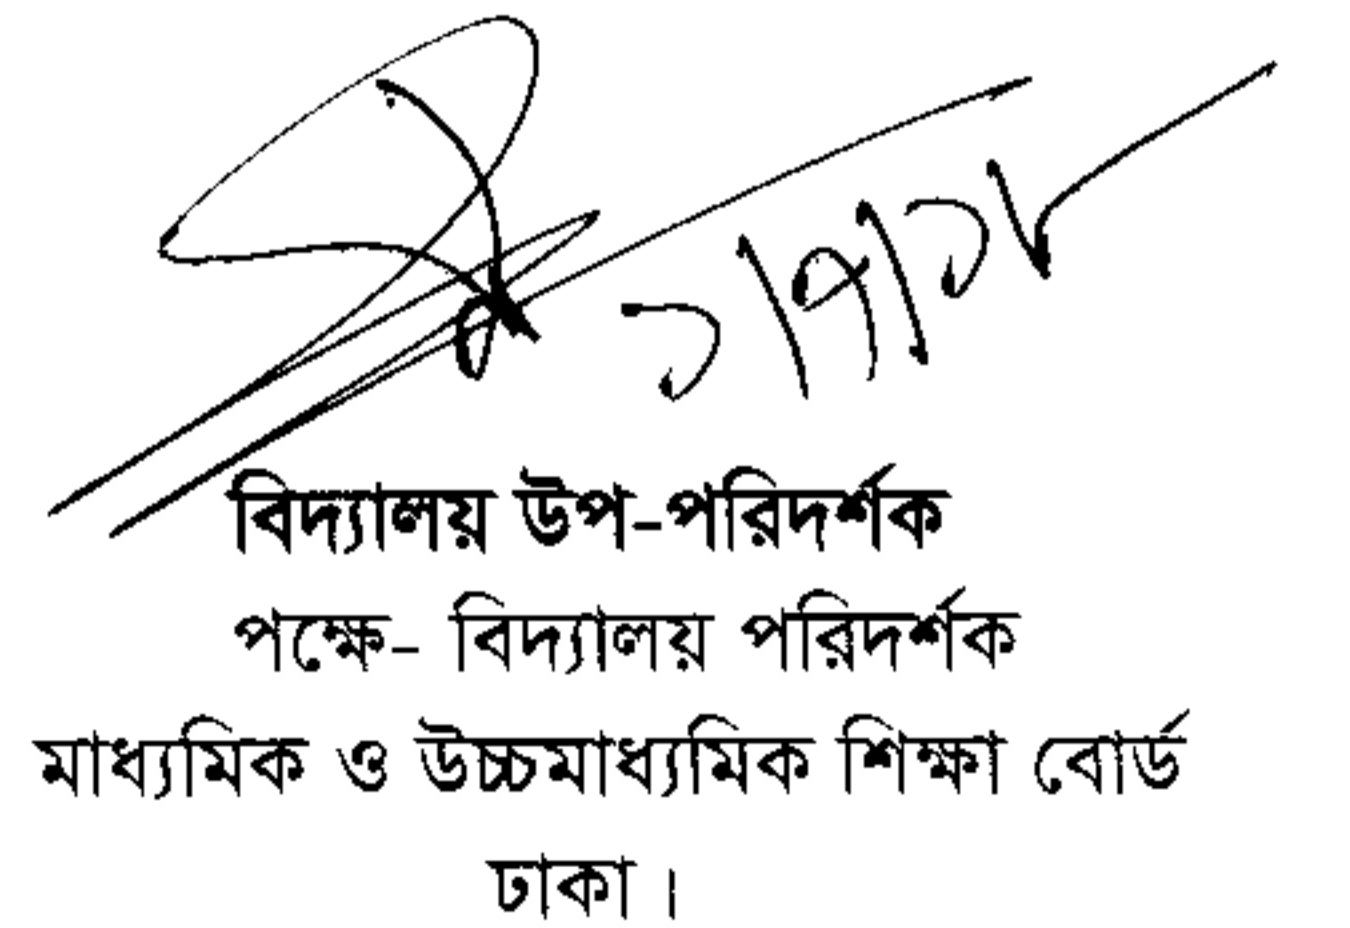 ১/৭/১৮
বিদ্যালয় উপ-পরিদর্শক
পক্ষে- বিদ্যালয় পরিদর্শক
মাধ্যমিক ও উচ্চমাধ্যমিক শিক্ষা বোর্ড
ঢাকা।